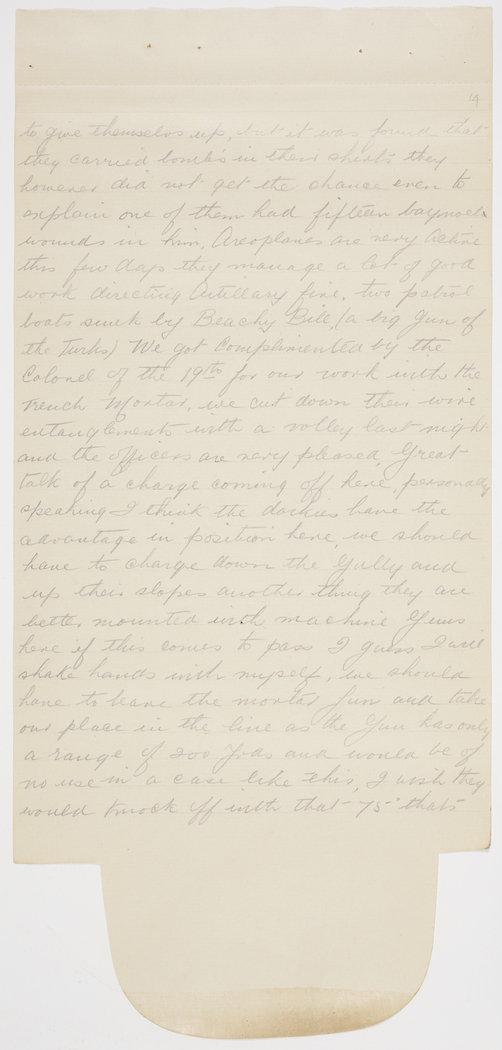 19
to give themselvs up, but it was found that
they carried bombs in their shirts they
however did not get the chance even to
explain one of them had fifteen bayonet
wounds in him, Areoplanes are very active
this few days they manage a lot of good
work directing Artillary fire, two patrol
boats sunk by Beachy Bill, (a big gun of
the Turks) We got Complimented by the
Colonel of the 19th for our work with the
Trench Mortar, we cut down their wire
entanglements with a volley last night
and the officers are very pleased, Great
talk of a charge coming off here, personaly
speaking I think the darkies have the
advantage in position here, we should
have to charge down the Gully and
up their slopes another thing they are
better mounted with machine Guns
here if this comes to pass I guess I will
shake hands with myself, we should
have to leave the mortar gun and take
our place in the line as the Gun has only
a range of 200 yrds and would be of
no use in a case like this, I wish they
would knock off with that 75" thats